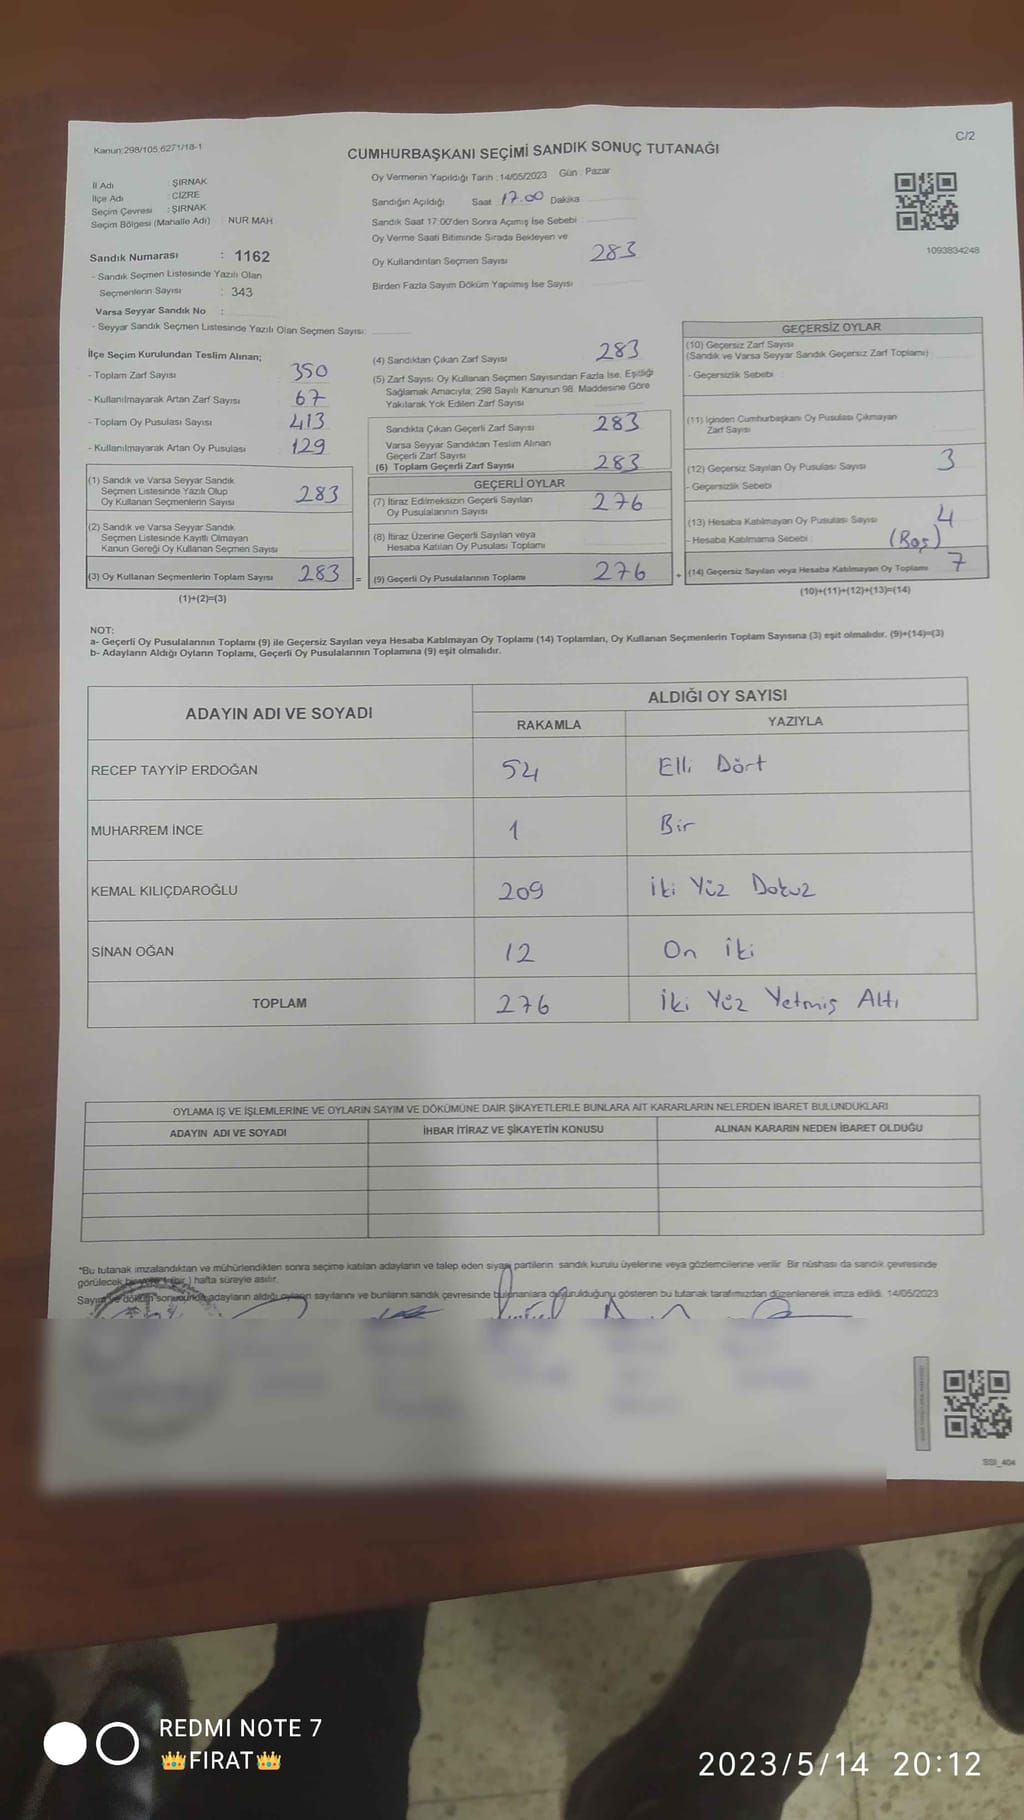 C/2
Kanun:298/105,6271/18-1
CUMHURBAŞKANI SEÇİMİ SANDIK SONUÇ TUTANAĞI
İl Adı : ŞIRNAK
İlçe Adı : CİZRE
Seçim Çevresi : ŞIRNAK
Seçim Bölgesi (Mahalle Adı) : NUR MAH
Sandık Numarası : 1162
- Sandık Seçmen Listesinde Yazılı Olan
Seçmenlerin Sayısı : 343
Varsa Seyyar Sandık No :
- Seyyar Sandık Seçmen Listesinde Yazılı Olan Seçmen Sayısı:
Oy Vermenin Yapıldığı Tarih : 14/05/2023 Gün : Pazar
Sandığın Açıldığı Saat 17.00 Dakika
Sandık Saat 17:00'den Sonra Açımış İse Sebebi
Oy Verme Saati Bitiminde Sırada Bekleyen ve
Oy Kullandırılan Seçmen Sayısı 283
Birden Fazla Sayım Döküm Yapılmış İse Sayısı
1093834248
İlçe Seçim Kurulundan Teslim Alınan;
- Toplam Zarf Sayısı 350
- Kullanılmayarak Artan Zarf Sayısı 67
- Toplam Oy Pusulası Sayısı 413
- Kullanılmayarak Artan Oy Pusulası 129
(1) Sandık ve Varsa Seyyar Sandık
Seçmen Listesinde Yazılı Olup
Oy Kullanan Seçmenlerin Sayısı 283
(2) Sandık ve Varsa Seyyar Sandık
Seçmen Listesinde Kayıtlı Olmayan
Kanun Gereği Oy Kullanan Seçmen Sayısı
(3) Oy Kullanan Seçmenlerin Toplam Sayısı 283 =
(1)+(2)=(3)
(4) Sandıktan Çıkan Zarf Sayısı 283
(5) Zarf Sayısı Oy Kullanan Seçmen Sayısından Fazla İse, Eşitliği
Sağlamak Amacıyla; 298 Sayılı Kanunun 98. Maddesine Göre
Yakılarak Yok Edilen Zarf Sayısı
Sandıkta Çıkan Geçerli Zarf Sayısı 283
Varsa Seyyar Sandıktan Teslim Alınan
Geçerli Zarf Sayısı
(6) Toplam Geçerli Zarf Sayısı 283
GEÇERLİ OYLAR
(7) İtiraz Edilmeksizin Geçerli Sayılan
Oy Pusulalarının Sayısı 276
(8) İtiraz Üzerine Geçerli Sayılan veya
Hesaba Katılan Oy Pusulası Toplamı
(9) Geçerli Oy Pusulalarının Toplamı 276 +
GEÇERSİZ OYLAR
(10) Geçersiz Zarf Sayısı
(Sandık ve Varsa Seyyar Sandık Geçersiz Zarf Toplamı)
- Geçersizlik Sebebi
(11) İçinden Cumhurbaşkanı Oy Pusulası Çıkmayan
Zarf Sayısı
(12) Geçersiz Sayılan Oy Pusulası Sayısı 3
- Geçersizlik Sebebi
(13) Hesaba Katılmayan Oy Pusulası Sayısı 4
- Hesaba Katılmama Sebebi : (Boş)
(14) Geçersiz Sayılan veya Hesaba Katılmayan Oy Toplamı 7
(10)+(11)+(12)+(13)=(14)
NOT:
a- Geçerli Oy Pusulalarının Toplamı (9) ile Geçersiz Sayılan veya Hesaba Katılmayan Oy Toplamı (14) Toplamları, Oy Kullanan Seçmenlerin Toplam Sayısına (3) eşit olmalıdır. (9)+(14)=(3)
b- Adayların Aldığı Oyların Toplamı, Geçerli Oy Pusulalarının Toplamına (9) eşit olmalıdır.
ADAYIN ADI VE SOYADI
ALDIĞI OY SAYISI
RAKAMLA YAZIYLA
RECEP TAYYİP ERDOĞAN 54 Elli Dört
MUHARREM İNCE 1 Bir
KEMAL KILIÇDAROĞLU 209 İki Yüz Dokuz
SİNAN OĞAN 12 On İki
TOPLAM 276 İki Yüz Yetmiş Altı
OYLAMA İŞ VE İŞLEMLERİNE VE OYLARIN SAYIM VE DÖKÜMÜNE DAİR ŞİKAYETLERLE BUNLARA AİT KARARLARIN NELERDEN İBARET BULUNDUKLARI
ADAYIN ADI VE SOYADI İHBAR İTİRAZ VE ŞİKAYETİN KONUSU ALINAN KARARIN NEDEN İBARET OLDUĞU
*Bu tutanak imzalandıktan ve mühürlendikten sonra seçime katılan adayların ve talep eden siyasi partilerin sandık kurulu üyelerine veya gözlemcilerine verilir. Bir nüshası da sandık çevresinde
görülecek bir yere ( bir ) hafta süreyle asılır.
Sayım ve döküm sonucunda adayların aldığı oyların sayılarını ve bunların sandık çevresinde bulunanlara duyurulduğunu gösteren bu tutanak tarafımızdan düzenlenerek imza edildi. 14/05/2023
SSI_404
REDMI NOTE 7
👑FIRAT👑
2023/5/14 20:12